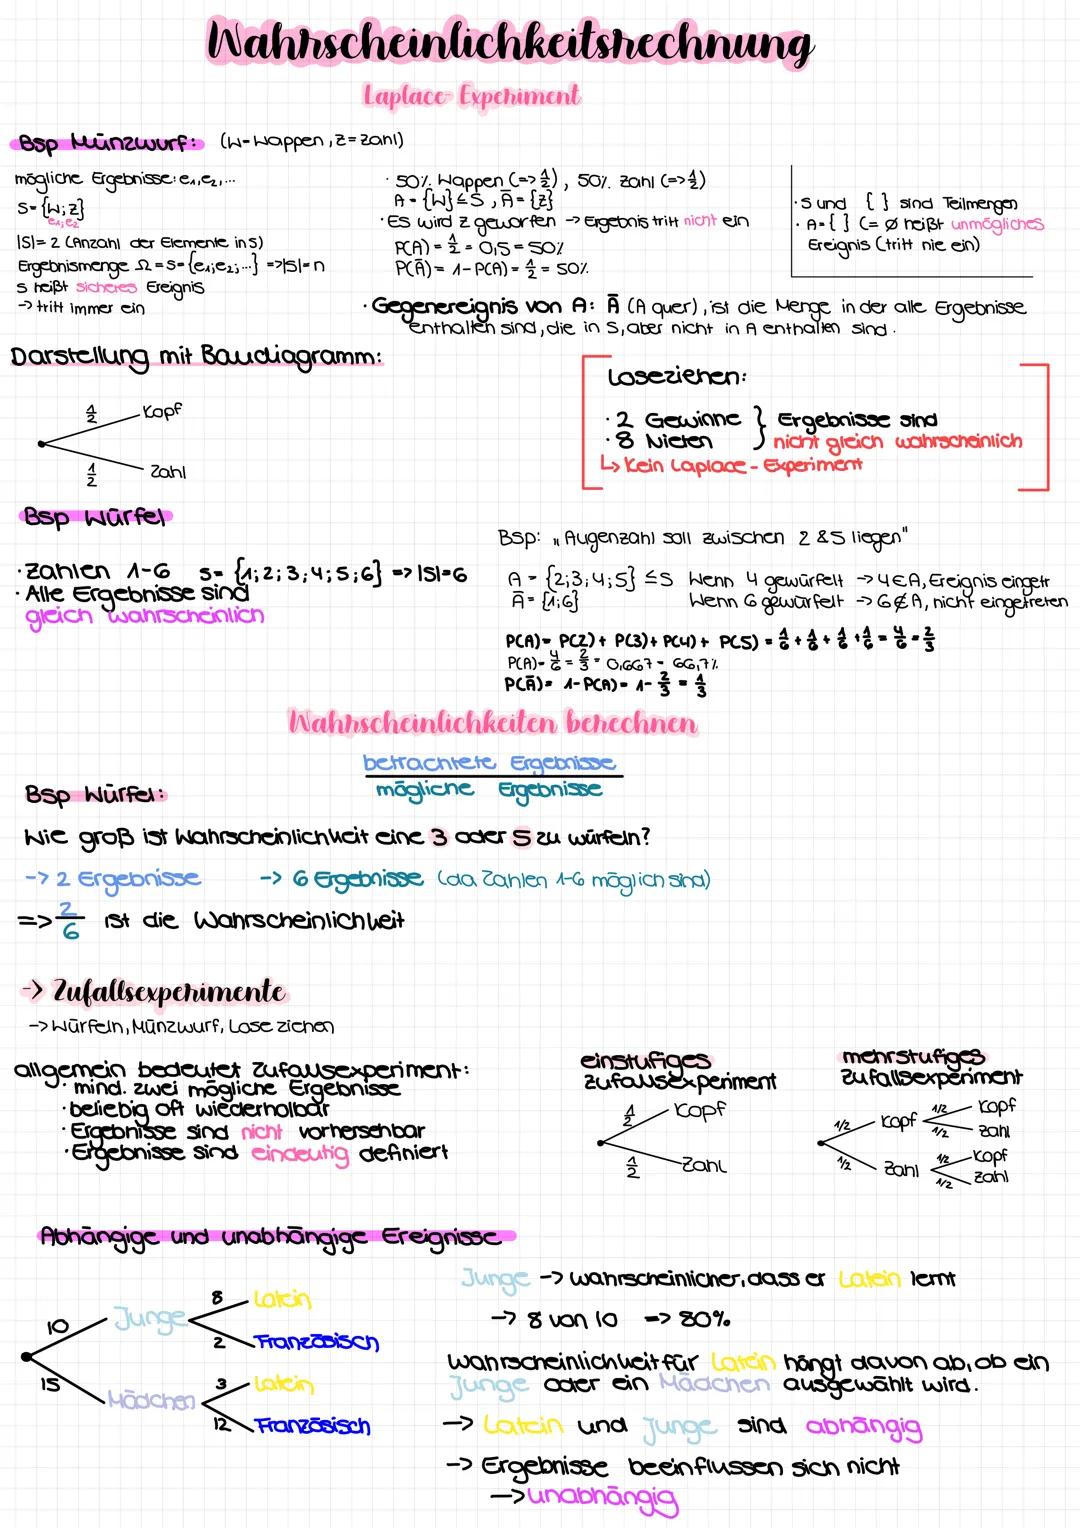 Wahrscheinlichkeitsrechnung
Laplace-Experiment
Bsp Münzwurf: (W-Wappen, Z=Zahl)
mögliche Ergebnisse: e₁, e₂, ...
S={W;Z}
e₁; e₂
|S|= 2 (Anzahl der Elemente in S)
Ergebnismenge Ω=S={e₁;e₂;...} =>|S|=n
S heißt sicheres Ereignis
-> tritt immer ein
· 50% Wappen (=> 1/2), 50% Zahl (=> 1/2)
A = {W} ≤ S, Ā = {Z}
· Es wird Z geworfen -> Ergebnis tritt nicht ein
P(A) = 1/2 = 0,5 = 50%
P(Ā) = 1-P(A) = 1/2 = 50%
· S und { } sind Teilmengen
· A={ } (= ∅ heißt unmögliches
Ereignis (tritt nie ein)
· Gegenereignis von A: Ā (A quer), ist die Menge in der alle Ergebnisse
enthalten sind, die in S, aber nicht in A enthalten sind.
Darstellung mit Baudiagramm:
1/2 Kopf
1/2 Zahl
Loseziehen:
· 2 Gewinne } Ergebnisse sind
· 8 Nieten nicht gleich wahrscheinlich
↳ Kein Laplace-Experiment
Bsp Würfel
· Zahlen 1-6 S= {1;2;3;4;5;6} => |S|=6
· Alle Ergebnisse sind
gleich wahrscheinlich
Bsp: „Augenzahl soll zwischen 2 & 5 liegen"
A = {2;3;4;5} ≤ S Wenn 4 gewürfelt -> 4∈A, Ereignis eingetr
Ā = {1;6} Wenn 6 gewürfelt -> 6∉A, nicht eingetreten
P(A)= P(2) + P(3) + P(4) + P(5) = 1/6 + 1/6 + 1/6 + 1/6 = 4/6 = 2/3
P(A)= 4/6 = 2/3 = 0,667 = 66,7%
P(Ā)= 1-P(A) = 1 - 2/3 = 1/3
Wahrscheinlichkeiten berechnen
betrachtete Ergebnisse
mögliche Ergebnisse
Bsp Würfel:
Wie groß ist Wahrscheinlichkeit eine 3 oder 5 zu würfeln?
-> 2 Ergebnisse -> 6 Ergebnisse (da Zahlen 1-6 möglich sind)
=> 2/6 ist die Wahrscheinlichkeit
-> Zufallsexperimente
-> Würfeln, Münzwurf, Lose ziehen
allgemein bedeutet Zufallsexperiment:
· mind. zwei mögliche Ergebnisse
· beliebig oft wiederholbar
· Ergebnisse sind nicht vorhersehbar
· Ergebnisse sind eindeutig definiert
einstufiges
Zufallsexperiment
1/2 Kopf
1/2 Zahl
mehrstufiges
Zufallsexperiment
1/2 Kopf 1/2 Kopf
1/2 Zahl
1/2 Zahl 1/2 Kopf
1/2 Zahl
Abhängige und unabhängige Ereignisse
10 Junge 8 Latein
2 Französisch
15 Mädchen 3 Latein
12 Französisch
Junge -> wahrscheinlicher, dass er Latein lernt
-> 8 von 10 => 80%
Wahrscheinlichkeit für Latein hängt davon ab, ob ein
Junge oder ein Mädchen ausgewählt wird.
-> Latein und Junge sind abhängig
-> Ergebnisse beeinflussen sich nicht
-> unabhängig